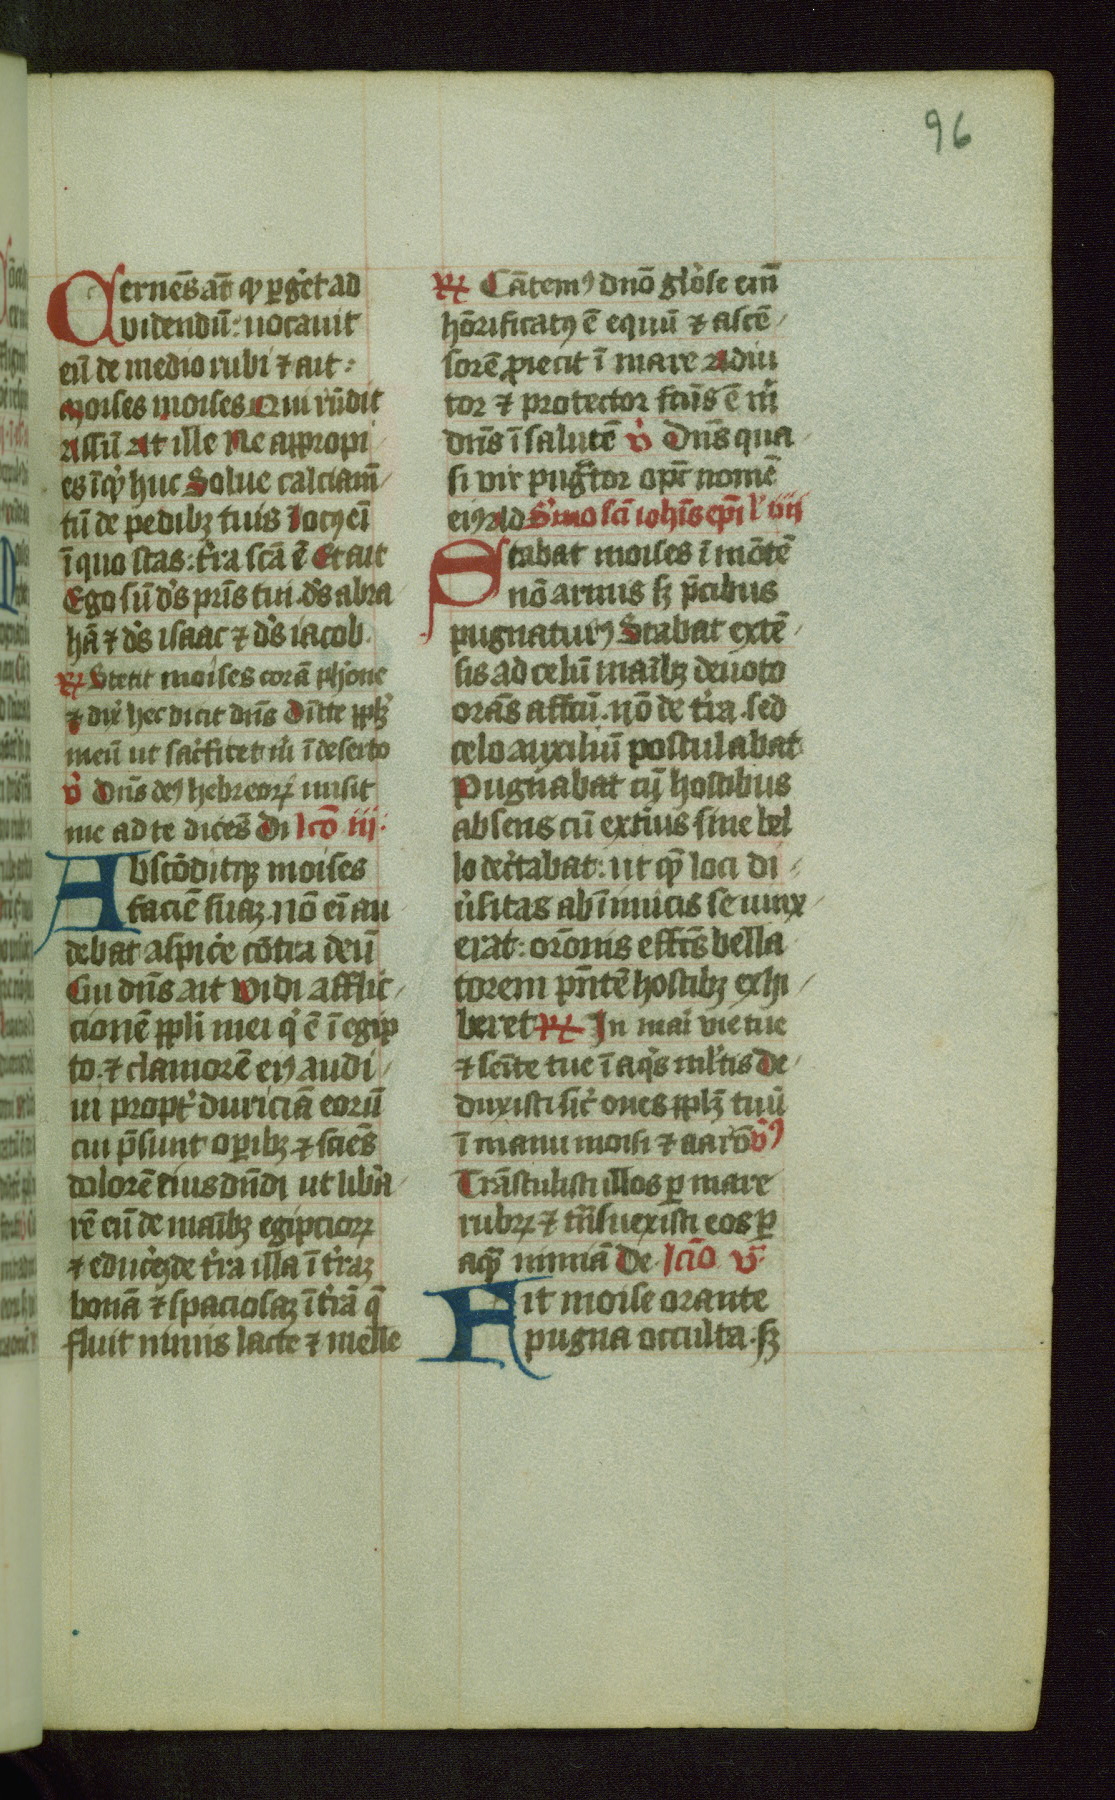 96
Cernēs at̄ qꝫ p̱ġet ad
videndū: uocauit
eū de medio rubi ⁊ ait:
Moises moises Qui rn̄dit
Assū At ille Ne appropi
es īqͥ huc Solue calciam̄
tū de pedibꝫ tuis Locꝰ eī
ī quo stas: t̄ra scā ē Et ait
Ego sū dꝰs pr̄is tui. dꝰs abra
hā ⁊ dꝰs isaac ⁊ dꝰs iacob.
℟ Stetit moises corā phone
⁊ dix̄ hec dicit dn̄s Dīitte pplꝫ
meū ut sacͥficet m̄ ī deserto
v̄ Dn̄s deꝰ hebreoꝝ misit
me ad te dicēs Di lcō iii.
Abscōditqꝫ moises
faciē suaꝫ. nō eī au
debat aspic̄e cōtra deū
Cui dn̄s ait vidi afflic
cionē ppli mei qͥ ē ī egip
to. ⁊ clamorē eiꝰ audi
ui propt̄ duriciā eorū
cui p̄sunt opibꝫ ⁊ sciēs
dolorē eius dn̄di ut lib̄a
rē eū de maībꝫ egipcioꝝ
⁊ educ̄eꝫ de t̄ra illa ī t̄raꝫ
bonā ⁊ spaciosaꝫ ī t̄rā q̄
fluit nimis lacte ⁊ melle
℟ Cātemꝰ dnō glōse em̄
hōrificatꝰ ē equū ⁊ ascē
sorē ꝓiecit ī mare Adiu
tor ⁊ protector fcūs ē m̄
dn̄s ī salutē v̄ Dn̄s qua
si vir pugtor opͣ nomē
eiꝰ Ad Smo scī iohīs ep̄i l iiii
Stabat moises ī mōtē
nō armis sꝫ p̄cibus
pugnaturꝰ Stabat extē
sis ad celū maībꝫ deuoto
orās affcū. nō de t̄ra. sed
celo auxiliū postulabat
Pugnabat cū hostibus
absens cū ext̄ius sine bel
lo dec̄tabat: ut qͣꝫ loci di
u̇sitas ab īmicis se iunx
erat: orōnis effcūs bella
torem pn̄tē hostibꝫ exhi
beret ℟ In mai vie tue
⁊ sēite tue ī aqͥs ml̄tis De
duxisti sic̄ oues pplꝫ tuū
ī manu moisi ⁊ aarō v̄
Trāstulisti illos p̱ mare
rubꝝ ⁊ tn̄suexisti eos p̱
aqͣꝫ nimiā De. lcīo v
Fit moise orante
pugna occulta. sꝫ